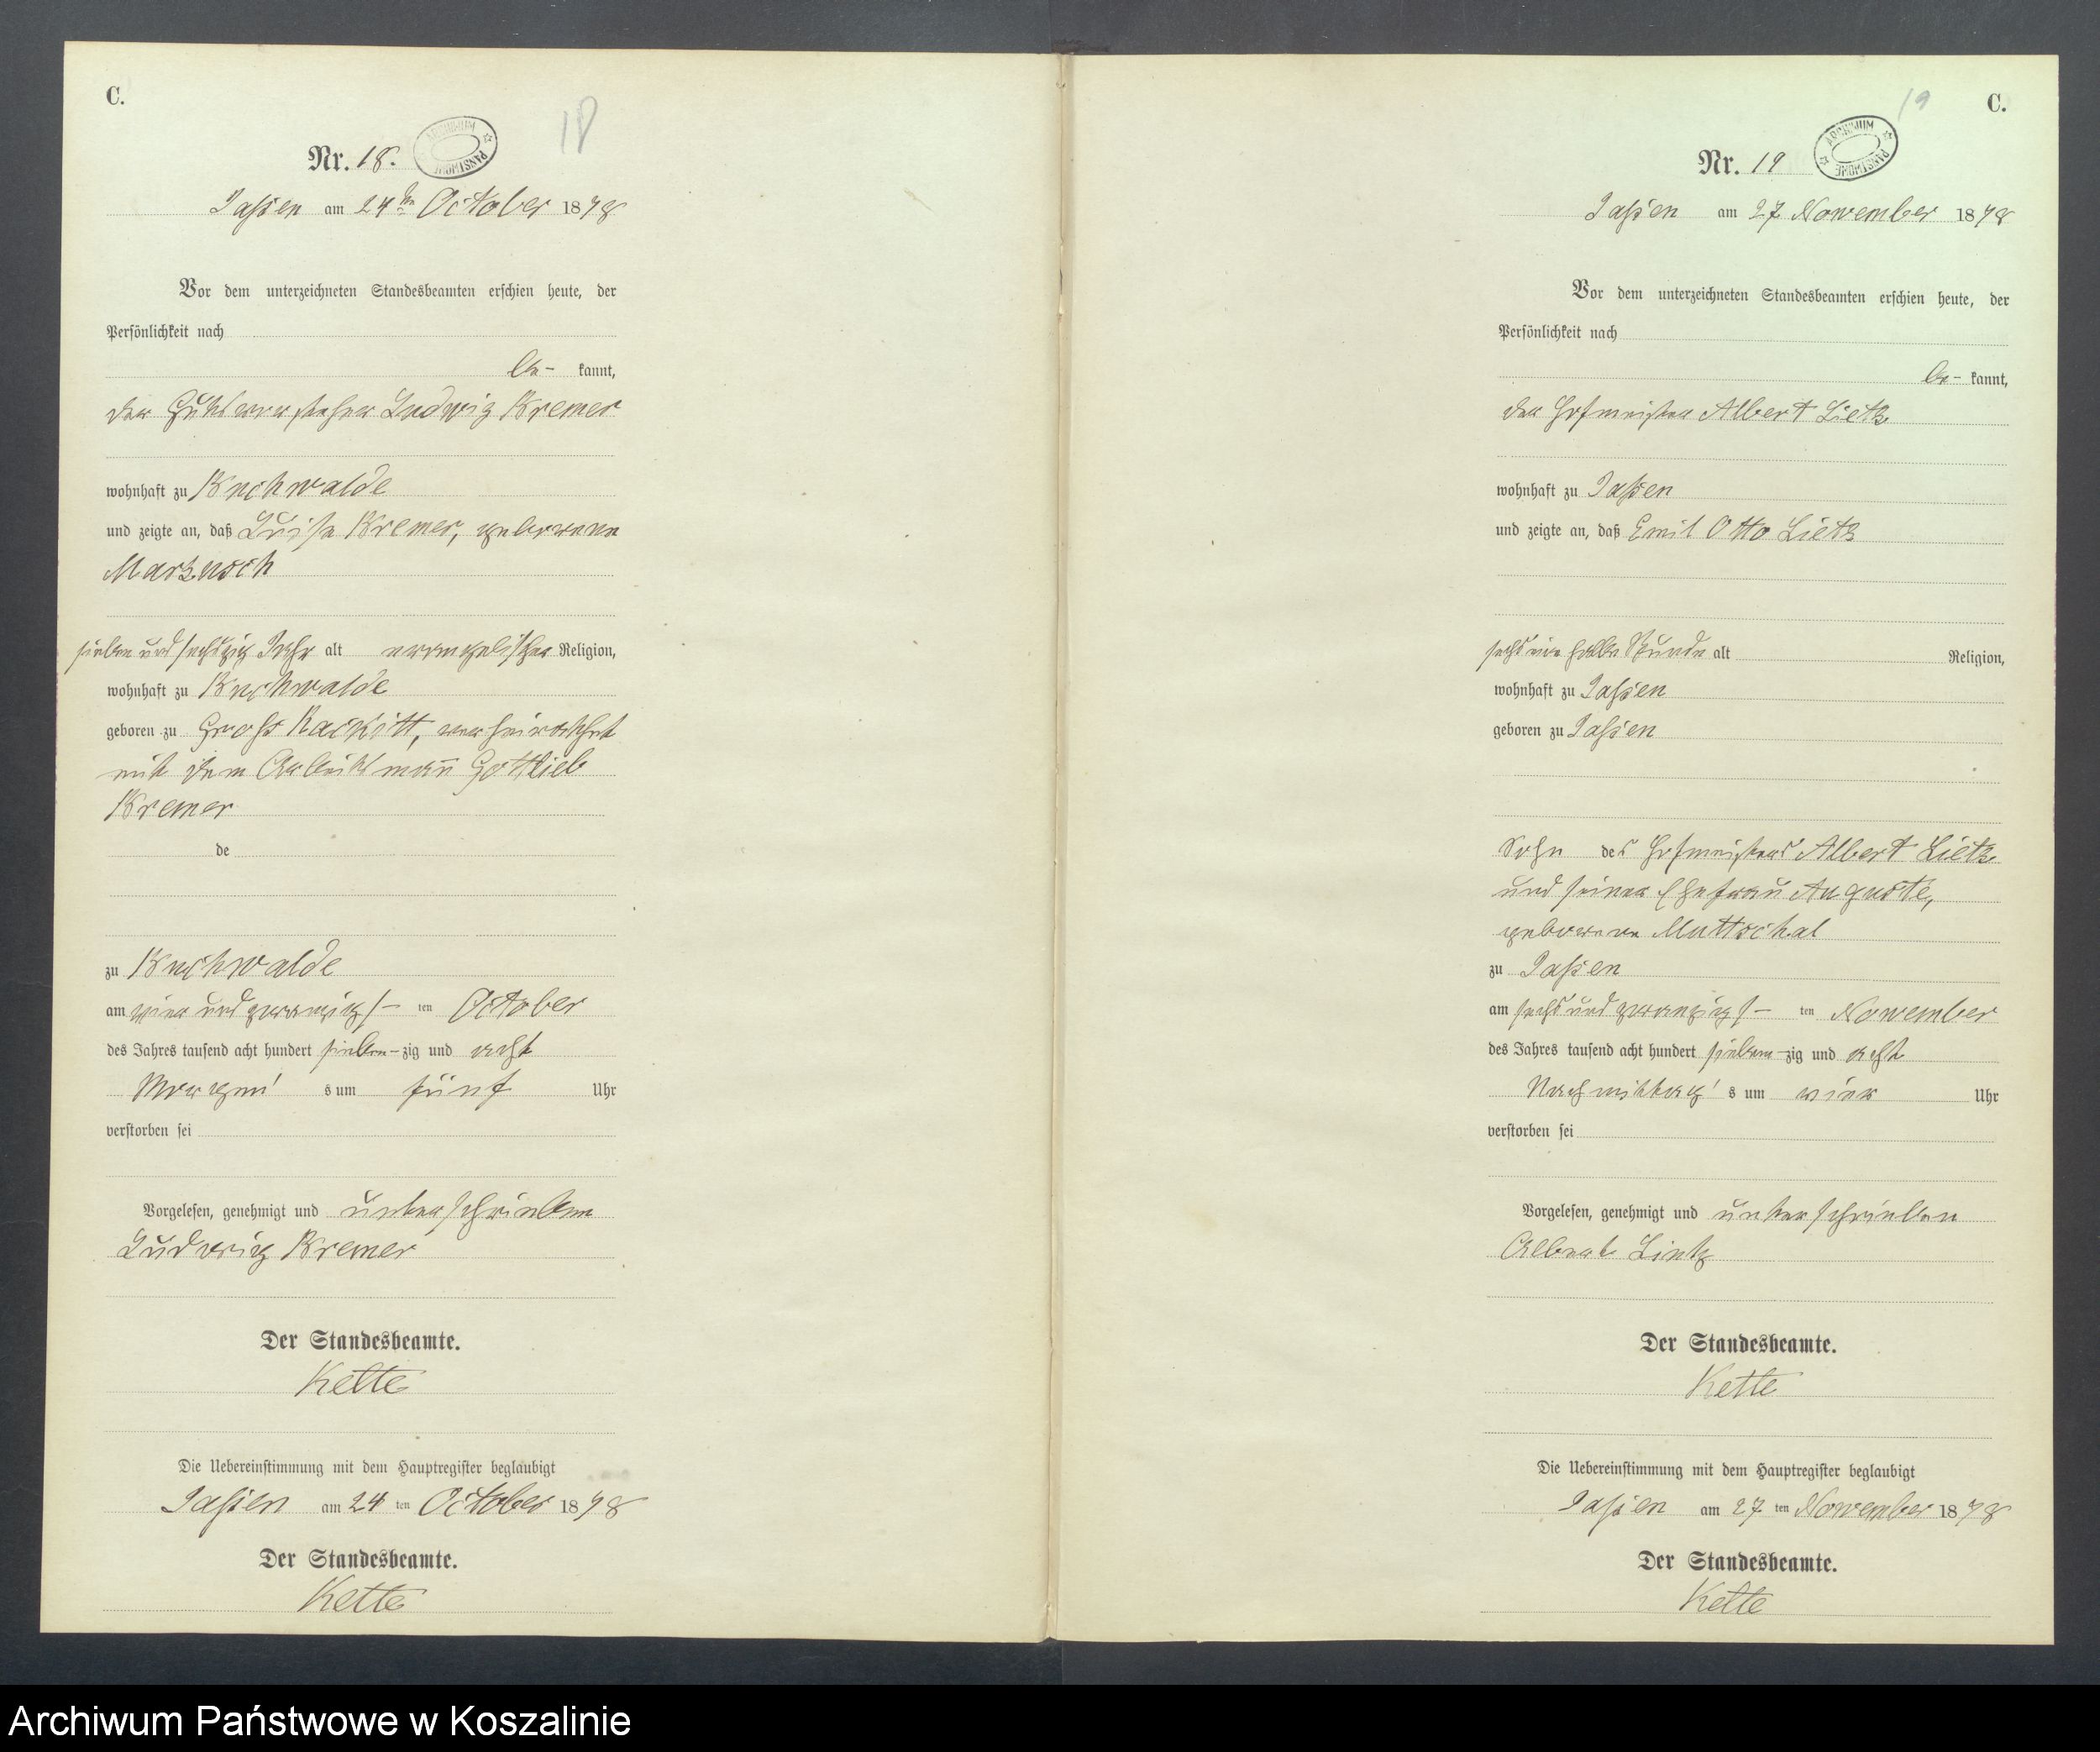 C.
18
Nr. 18.
ARCHIWUM PAŃSTWOWE
Jassen am 24ten October 1878
Vor dem unterzeichneten Standesbeamten erschien heute, der
Persönlichkeit nach
be- kannt,
der Gutsvorsteher Ludwig Kremer
wohnhaft zu Buchwalde
und zeigte an, daß Luise Kremer, geborene
sieben und sechszig Jahr alt evangelischer Religion,
wohnhaft zu Buchwalde
geboren zu Gross Rackitt, verheirathet
mit dem Arbeitsmann Gottlieb
Kremer
de
zu Buchwalde
am vier und zwanzigs- ten October
des Jahres tausend acht hundert sieben-zig und acht
Morgens um fünf Uhr
verstorben sei
Vorgelesen, genehmigt und unterschrieben
Ludwig Kremer
Der Standesbeamte.
Kette
Die Uebereinstimmung mit dem Hauptregister beglaubigt
Jassen am 24 ten October 1878
Der Standesbeamte.
Kette
19
C.
Nr. 19
ARCHIWUM PAŃSTWOWE
Jassen am 27 November 1878
Vor dem unterzeichneten Standesbeamten erschien heute, der
Persönlichkeit nach
be- kannt,
der Hofmeister Albert Lietz
wohnhaft zu Jassen
und zeigte an, daß Emil Otto Lietz
sechs eine halbe Stunde alt Religion,
wohnhaft zu Jassen
geboren zu Jassen
Sohn des Hofmeisters Albert Lietz
und seiner Ehefrau Auguste,
geborene Muttschal
zu Jassen
am sechs und zwanzigs- ten November
des Jahres tausend acht hundert sieben-zig und acht
Nachmittags um vier Uhr
verstorben sei
Vorgelesen, genehmigt und unterschrieben
Albert Lietz
Der Standesbeamte.
Kette
Die Uebereinstimmung mit dem Hauptregister beglaubigt
Jassen am 27 ten November 1878
Der Standesbeamte.
Kette
Archiwum Państwowe w Koszalinie